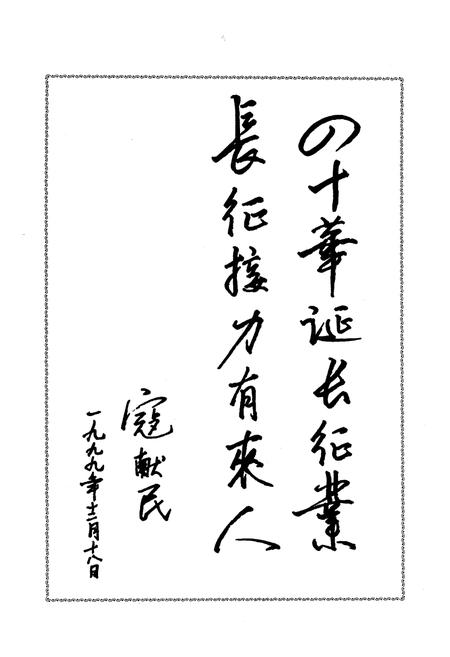 四十華誕长征業
長征接力有來人
寇献民
一九九九年十二月十八日